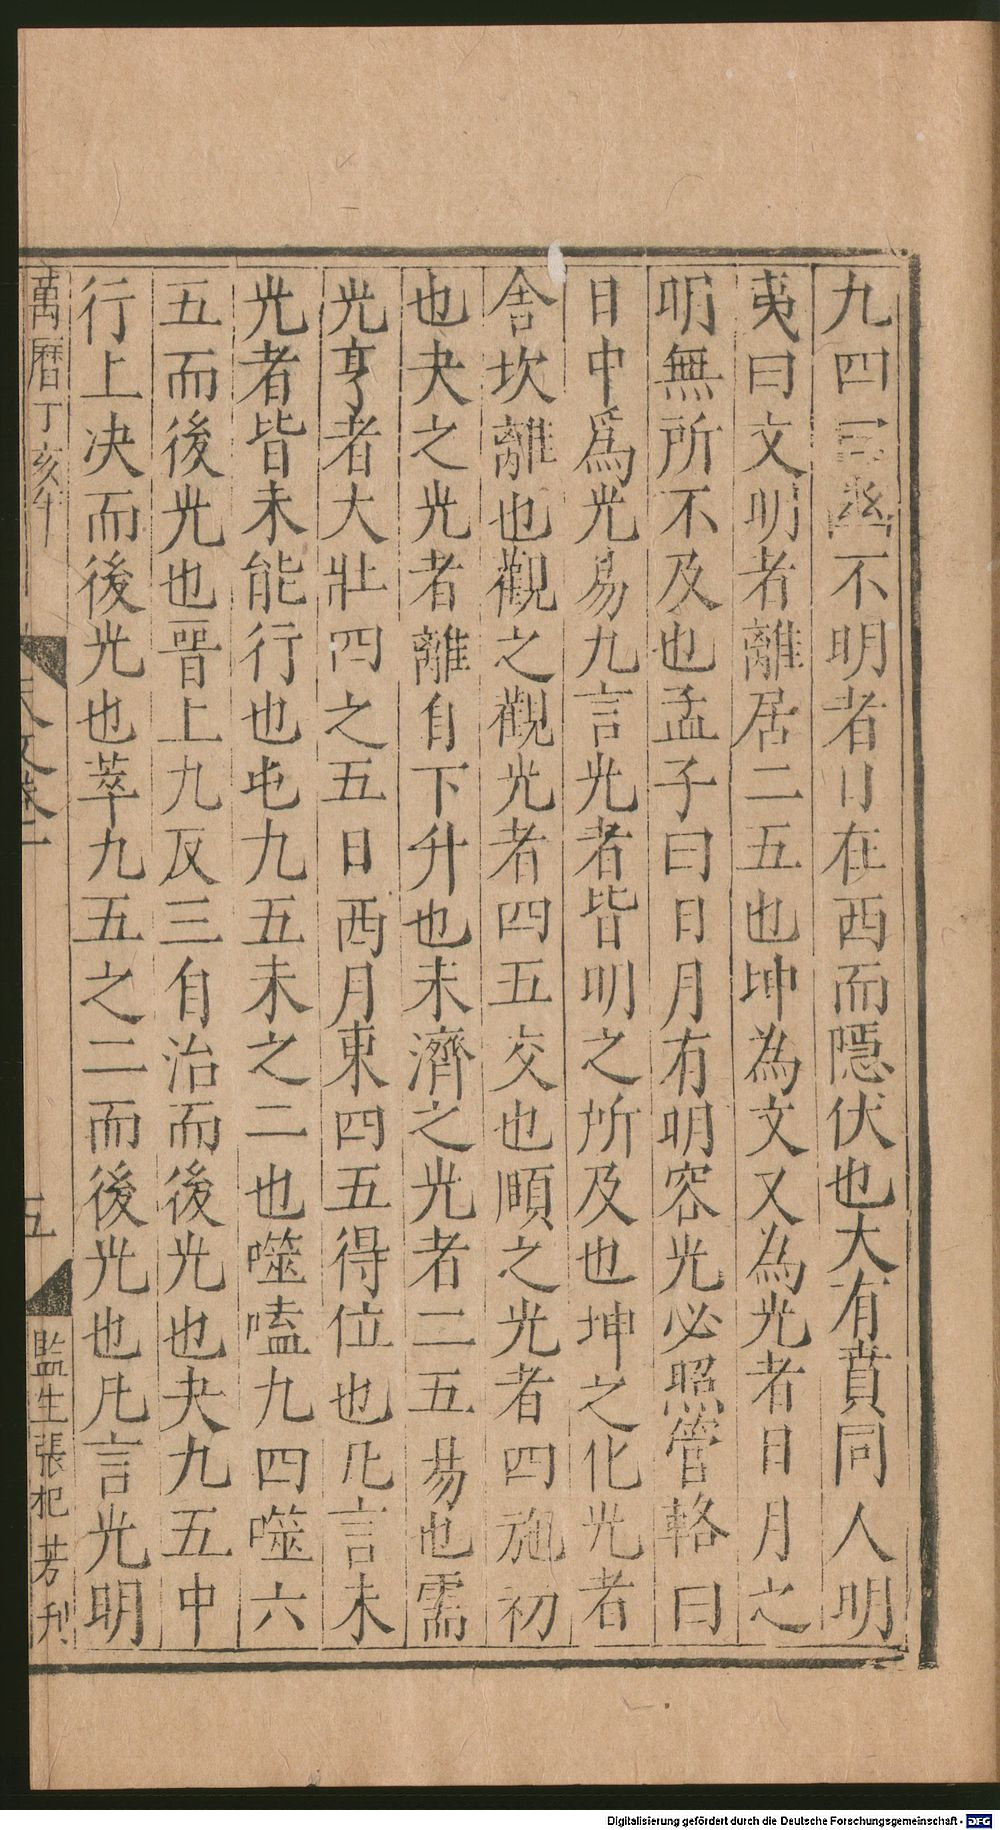 九四曰幽不明者日在西而隱伏也大有賁同人明
夷曰文明者離居二五也坤為文又為光者日月之
明無所不及也孟子曰日月有明容光必照管輅曰
日中爲光易九言光者皆明之所及也坤之化光者
舎坎離也觀之觀光者四五交也頤之光者四施初
也夬之光者離自下升也未濟之光者二五易也需
光亨者大壯四之五日西月東四五得位也凡言未
光者皆未能行也屯九五未之二也噬嗑九四噬六
五而後光也晉上九反三自治而後光也夬九五中
行上决而後光也萃九五之二而後光也凡言光明
萬曆丁亥年
五
監生張杞芳刋
Digitalisierung gefördert durch die Deutsche Forschungsgemeinschaft - DFG